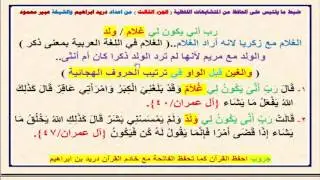 ضبط ما يلتبس على الحافظ من المتشابهات اللفظية ، الجزء الثالث ، من اعداد دريد ابراهيم والشيخة عبير محمود
رب أنى يكون لي غلام / ولد
الغلام مع زكريا لانه أراد الغلام ..( الغلام في اللغة العربية بمعنى ذكر )
والولد مع مريم لأنها لم ترد الولد ذكرا كان أم أنثى..
• والغين قبل الواو في ترتيب الحروف الهجائية )
١- قَالَ رَبِّ أَنَّىٰ يَكُونُ لِي غُلَامٌ وَقَدْ بَلَغَنِيَ الْكِبَرُ وَامْرَأَتِي عَاقِرٌ قَالَ كَذَٰلِكَ اللَّهُ يَفْعَلُ مَا يَشَاءُ [آل عمران/٤٠].
٢- قَالَتْ رَبِّ أَنَّىٰ يَكُونُ لِي وَلَدٌ وَلَمْ يَمْسَسْنِي بَشَرٌ قَالَ كَذَٰلِكِ اللَّهُ يَخْلُقُ مَا يَشَاءُ إِذَا قَضَىٰ أَمْرًا فَإِنَّمَا يَقُولُ لَهُ كُنْ فَيَكُونُ [آل عمران/٤٧].
جروب احفظ القرآن كما تحفظ الفاتحة مع خادم القرآن دريد بن ابراهيم